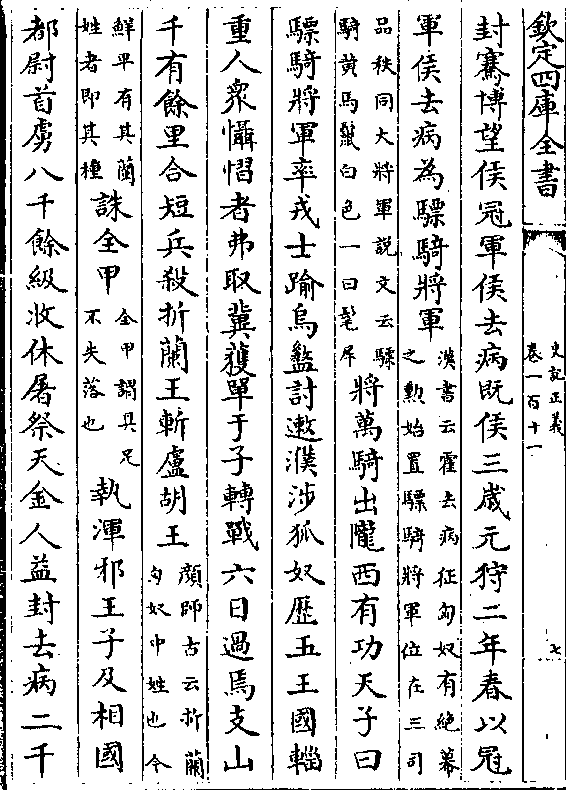 欽定四庫全書
史記正義
卷一百十一
七
封騫博望侯冠軍侯去病既侯三歲元狩二年春以冠
軍侯去病為驃騎將軍漢書云霍去病征匈奴有絶幕
之勲始置驃騎將軍位在三司
品秩同大將軍説文云驃
騎黄馬鬛白色一曰髦尾將萬騎出隴西有功天子曰
驃騎將軍率戎士踰烏盭討遫濮涉狐奴歷五王國輜
重人衆懾慴者弗取冀獲單于子轉戰六日過焉支山
千有餘里合短兵殺折蘭王斬盧胡王顔師古云折蘭
匈奴中姓也今
鮮卑有其蘭
姓者即其種誅全甲全甲謂具足
不失落也執渾邪王子及相國
都尉首虜八千餘級收休屠祭天金人益封去病二千